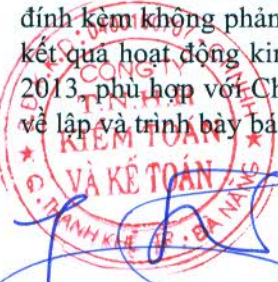 đính kèm không phản
kết quả hoạt động kin
2013, phù hợp với Ch
về lập và trình bày bá
CÔNG TY
T.N.H.H
KIỂM TOÁN
VÀ KẾ TOÁN
Q. THANH KHÊ - TP. ĐÀ NẴNG